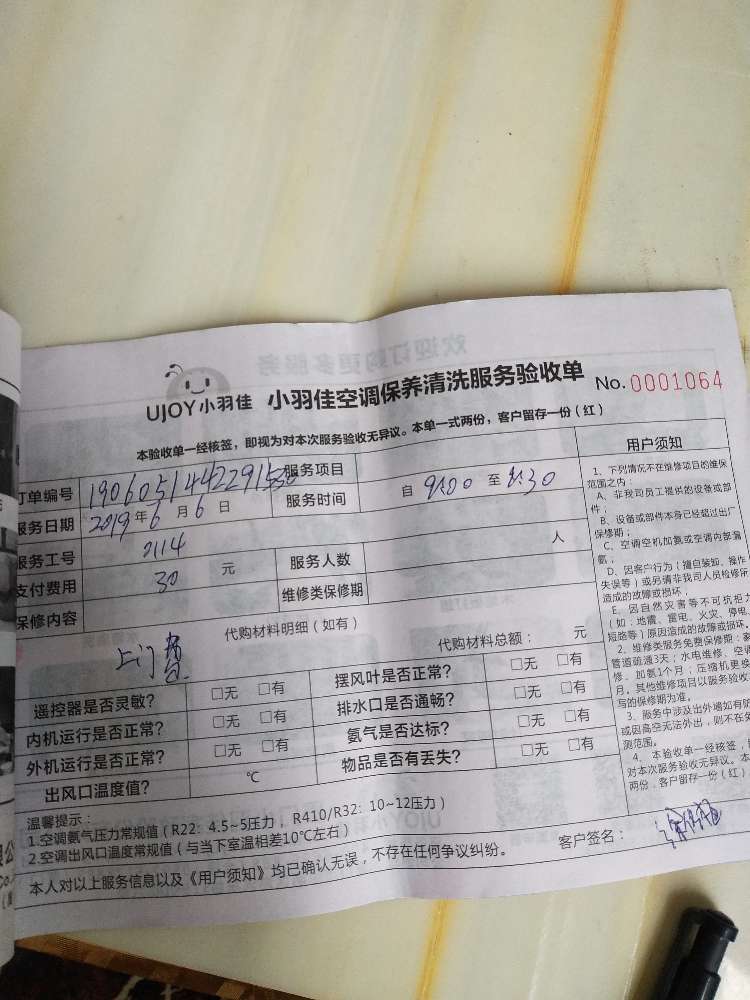 UJOY小羽佳 小羽佳空调保养清洗服务验收单 No. 0001064
本验收单一经核签，即视为对本次服务验收无异议。本单一式两份，客户留存一份（红）
订单编号 服务项目
服务日期 2019年6月6日 服务时间 自 9:00 至 9:30
服务工号 0114 服务人数 人
支付费用 30 元 维修类保修期
保修内容
代购材料明细（如有）
上门费 代购材料总额： 元
遥控器是否灵敏？ □无 □有 摆风叶是否正常？ □无 □有
内机运行是否正常？ □无 □有 排水口是否通畅？ □无 □有
外机运行是否正常？ □无 □有 氨气是否达标？ □无 □有
出风口温度值？ ℃ 物品是否有丢失？ □无 □有
用户须知
1、下列情况不在维修项目的维保
范围之内：
A、非我司员工提供的设备或部
件；
B、设备或部件本身已经超过出厂
保修期；
C、空调空机加氨或空调内部漏
氨；
D、因客户行为（擅自装卸、操作
失误等）或另请非我司人员检修所
造成的故障或损坏；
E、因自然灾害等不可抗拒力
（如：地震、雷电、火灾、停电、
短路等）原因造成的故障或损坏。
2、维修类服务免费保修期：
管道疏通3天；水电维修、空调
修、加氨1个月；压缩机更换
月。其他维修项目以服务验收
写的保修期为准。
3、服务中涉及出外墙如有防
或因高空无法外出，则不在
测范围。
4、本验收单一经核签，
对本次服务验收无异议。本
两份，客户留存一份（红）
温馨提示：
1.空调氨气压力常规值（R22：4.5~5压力，R410/R32：10~12压力）
2.空调出风口温度常规值（与当下室温相差10℃左右）
本人对以上服务信息以及《用户须知》均已确认无误，不存在任何争议纠纷。 客户签名：